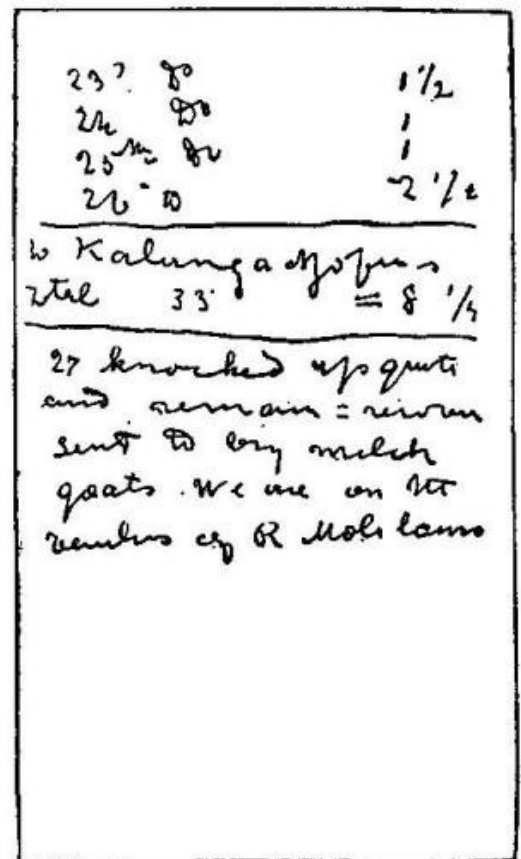 23? Do 1 1/2
24 Do 1
25th Do 1
26 " Do 2 1/2
to Kalunganjofu s
total 33 = 8 1/4
27 knocked up quite
and remain = recover
sent to buy milch
goats. We are on the
banks of R Molilamo